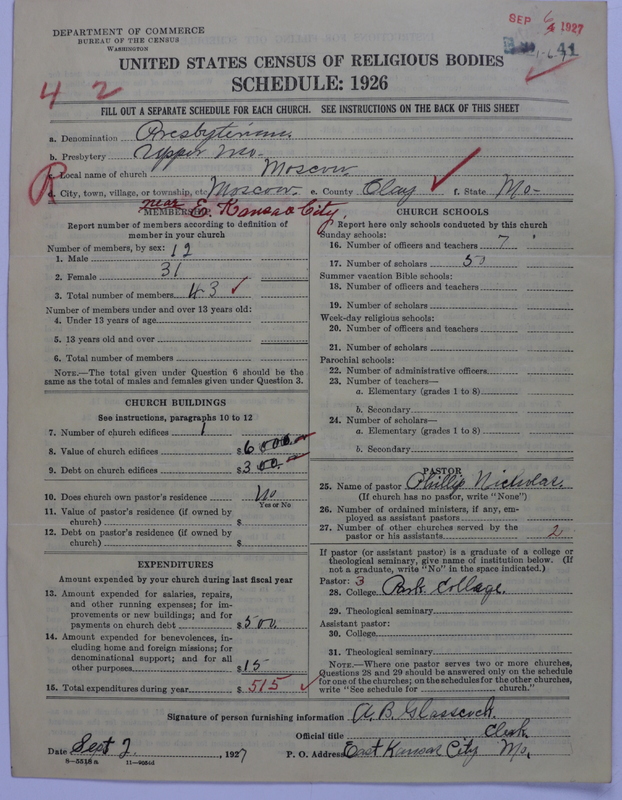 DEPARTMENT OF COMMERCE
BUREAU OF THE CENSUS
WASHINGTON
SEP 6 1927
41
UNITED STATES CENSUS OF RELIGIOUS BODIES
SCHEDULE: 1926
42
FILL OUT A SEPARATE SCHEDULE FOR EACH CHURCH. SEE INSTRUCTIONS ON THE BACK OF THIS SHEET
a. Denomination Presbyterian.
b. Presbytery Upper Mo.
c. Local name of church Moscow
R
d. City, town, village, or township, etc Moscow e. County Clay f. State Mo-
near E. Kansas City
MEMBERSHIP
Report number of members according to definition of
member in your church
Number of members, by sex:
1. Male 12
2. Female 31
3. Total number of members 43
Number of members under and over 13 years old:
4. Under 13 years of age
5. 13 years old and over
6. Total number of members
NOTE.—The total given under Question 6 should be
the same as the total of males and females given under Question 3.
CHURCH BUILDINGS
See instructions, paragraphs 10 to 12
7. Number of church edifices 1
8. Value of church edifices $6000.
9. Debt on church edifices $300.
10. Does church own pastor's residence No
Yes or No
11. Value of pastor's residence (if owned by
church) $
12. Debt on pastor's residence (if owned by
church) $
EXPENDITURES
Amount expended by your church during last fiscal year
13. Amount expended for salaries, repairs,
and other running expenses; for im-
provements or new buildings; and for
payments on church debt $500.
14. Amount expended for benevolences, in-
cluding home and foreign missions; for
denominational support; and for all
other purposes $15
15. Total expenditures during year $515
CHURCH SCHOOLS
Report here only schools conducted by this church
Sunday schools:
16. Number of officers and teachers 7
17. Number of scholars
Summer vacation Bible schools:
18. Number of officers and teachers
19. Number of scholars
Week-day religious schools:
20. Number of officers and teachers
21. Number of scholars
Parochial schools:
22. Number of administrative officers
23. Number of teachers—
a. Elementary (grades 1 to 8)
b. Secondary
24. Number of scholars—
a. Elementary (grades 1 to 8)
b. Secondary
PASTOR
25. Name of pastor Phillip Nicholas.
(If church has no pastor, write "None")
26. Number of ordained ministers, if any, em-
ployed as assistant pastors
27. Number of other churches served by the
pastor or his assistants 2
If pastor (or assistant pastor) is a graduate of a college or
theological seminary, give name of institution below. (If
not a graduate, write "No" in the space indicated.)
Pastor: 3
28. College Park College.
29. Theological seminary
Assistant pastor:
30. College
31. Theological seminary
NOTE.—Where one pastor serves two or more churches,
Questions 28 and 29 should be answered only on the schedule
for one of the churches; on the schedules for the other churches,
write "See schedule for church."
Signature of person furnishing information A. B. Glasscock.
Official title Clerk.
Date Sept 2, 1927 P. O. Address East Kansas City Mo.
8—5518a 11—9056d